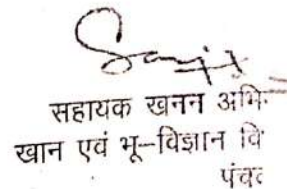 सहायक खनन अभि
खान एवं भू-विज्ञान वि
पंच